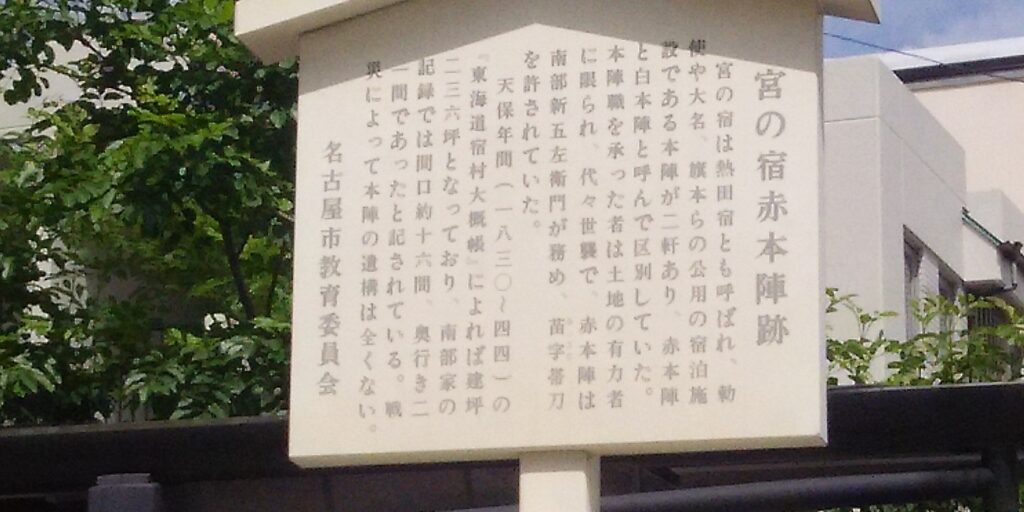 宮の宿赤本陣跡
宮の宿は熱田宿とも呼ばれ、勅
使や大名、旗本らの公用の宿泊施
設である本陣が二軒あり、赤本陣
と白本陣と呼んで区別していた。
本陣職を承った者は土地の有力者
に限られ、代々世襲で、赤本陣は
南部新五左衛門が務め、苗字帯刀
を許されていた。
天保年間(一八三〇〜四四)の
『東海道宿村大概帳』によれば建坪
二三六坪となっており、南部家の
記録では間口約十六間、奥行き二
一間であったと記されている。戦
災によって本陣の遺構は全くない。
名古屋市教育委員会